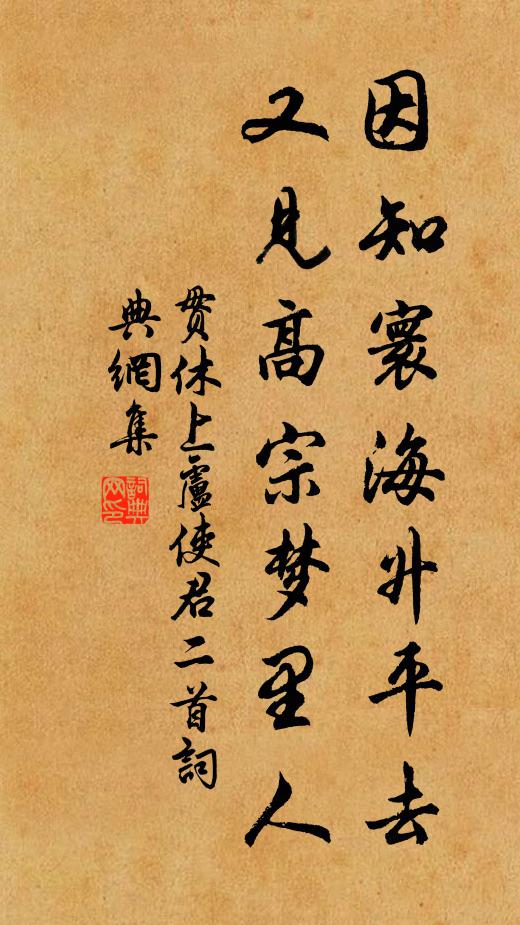 因知寰海升平去
又见高宗梦里人
贯休上盧使君二首詞
典網集
詞典
网印